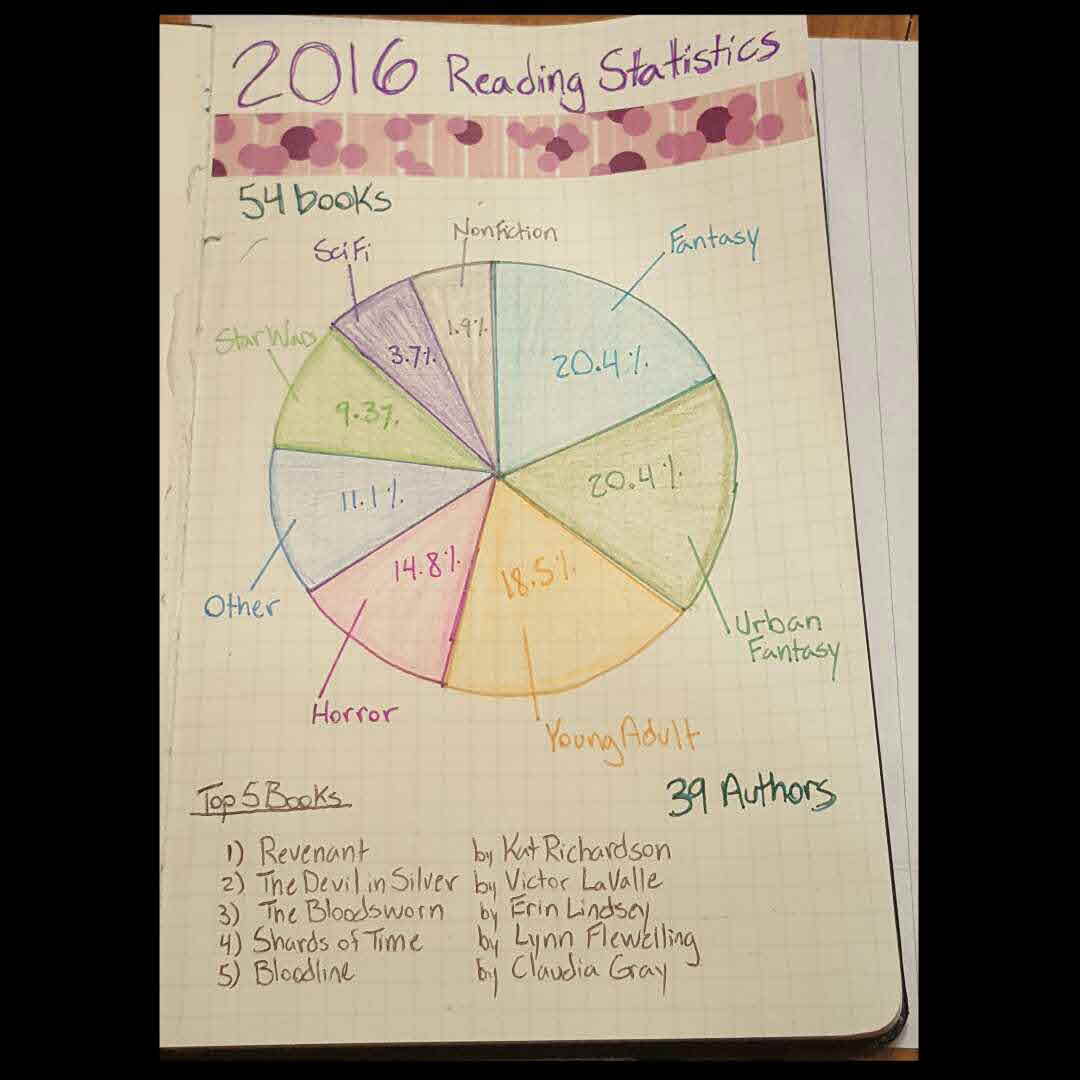 2016 Reading Statistics
54 books
NonFiction
Fantasy
SciFi
Star Wars
1.9%
3.7%
20.4%
9.3%
20.4%
11.1%
14.8%
18.5%
Other
Urban
Fantasy
Horror
Young Adult
39 Authors
Top 5 Books
1) Revenant by Kat Richardson
2) The Devil in Silver by Victor LaValle
3) The Bloodsworn by Erin Lindsey
4) Shards of Time by Lynn Flewelling
5) Bloodline by Claudia Gray